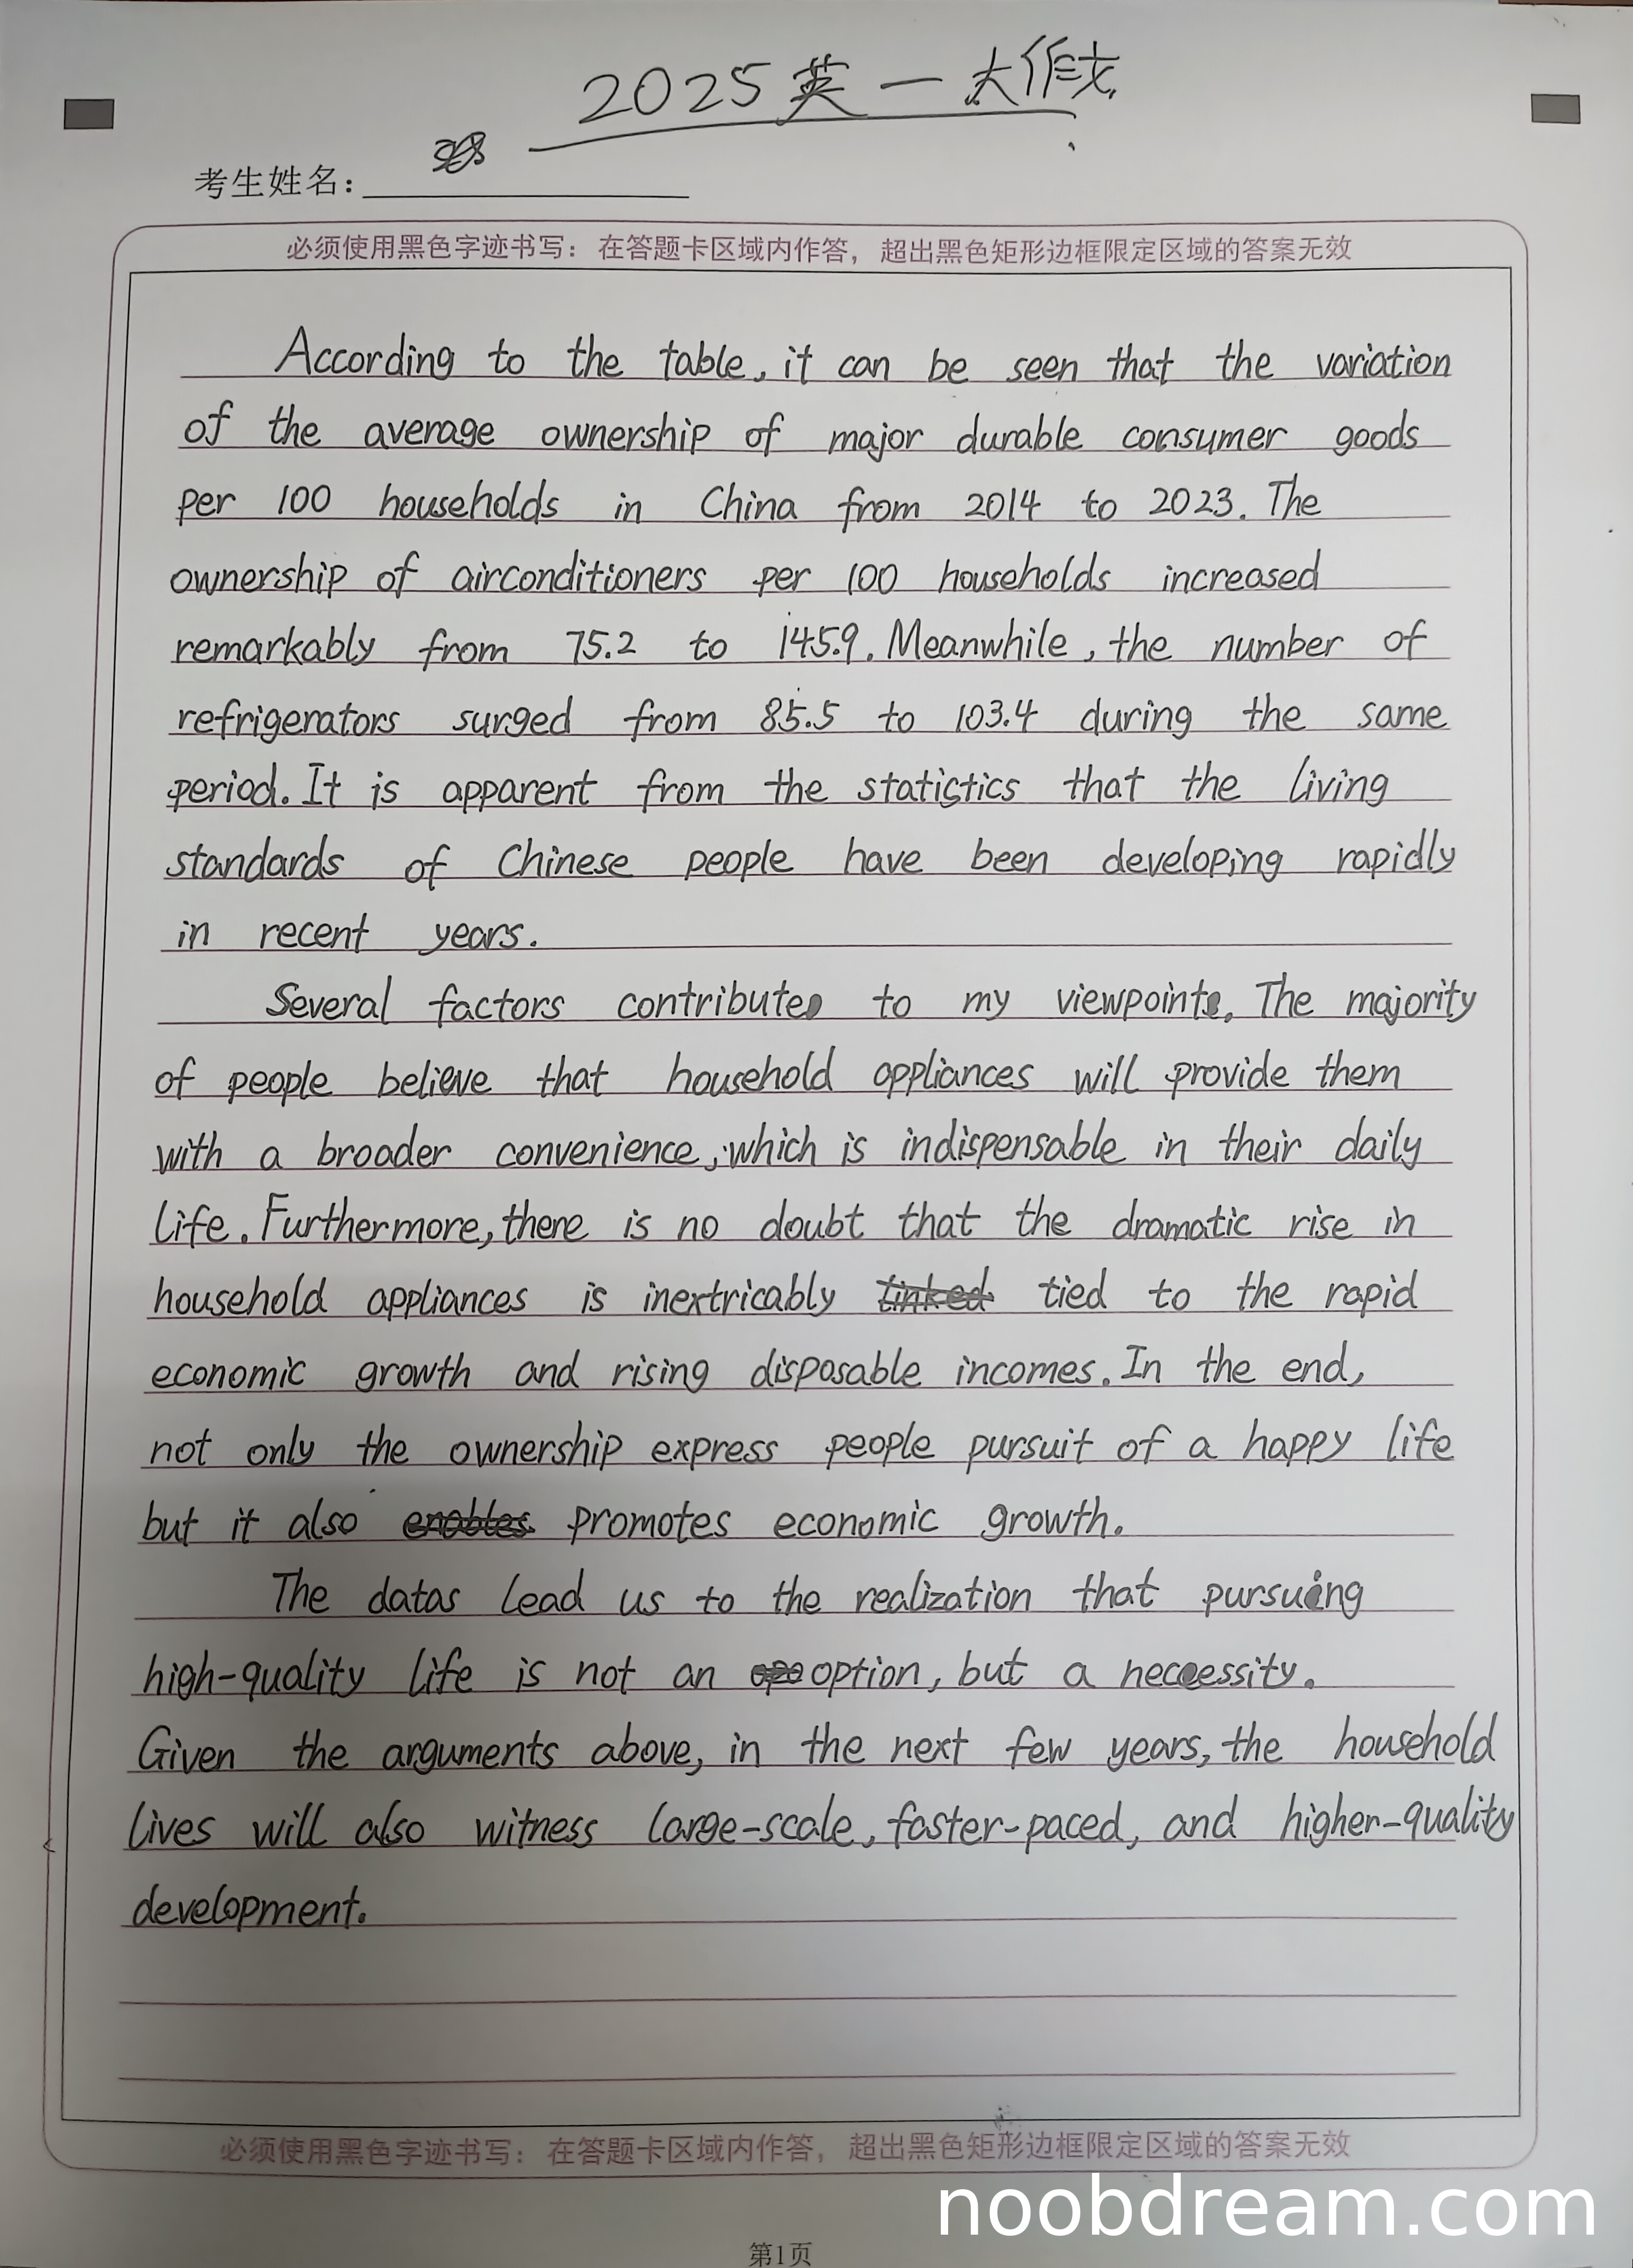 2025英一大作文
考生姓名:
必须使用黑色字迹书写：在答题卡区域内作答，超出黑色矩形边框限定区域的答案无效
According to the table, it can be seen that the variation
of the average ownership of major durable consumer goods
per 100 households in China from 2014 to 2023. The
ownership of airconditioners per 100 households increased
remarkably from 75.2 to 145.9. Meanwhile, the number of
refrigerators surged from 85.5 to 103.4 during the same
period. It is apparent from the statistics that the living
standards of Chinese people have been developing rapidly
in recent years.
Several factors contribute to my viewpoints. The majority
of people believe that household appliances will provide them
with a broader convenience, which is indispensable in their daily
life. Furthermore, there is no doubt that the dramatic rise in
household appliances is inextricably tied to the rapid
economic growth and rising disposable incomes. In the end,
not only the ownership express people pursuit of a happy life
but it also promotes economic growth.
The datas lead us to the realization that pursuing
high-quality life is not an option, but a neccessity.
Given the arguments above, in the next few years, the household
lives will also witness large-scale, faster-paced, and higher-quality
development.
必须使用黑色字迹书写：在答题卡区域内作答，超出黑色矩形边框限定区域的答案无效
noobdream.com
第1页